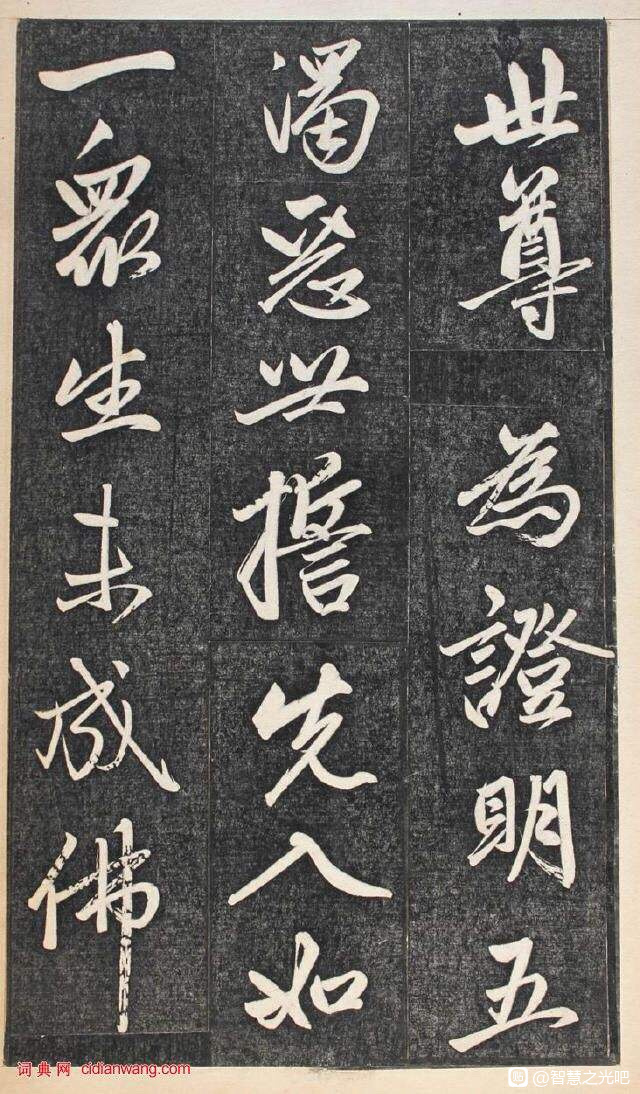 世尊為證明五
濁惡世誓先入如
一眾生未成佛
词典网 cidianwang.com
@智慧之光吧